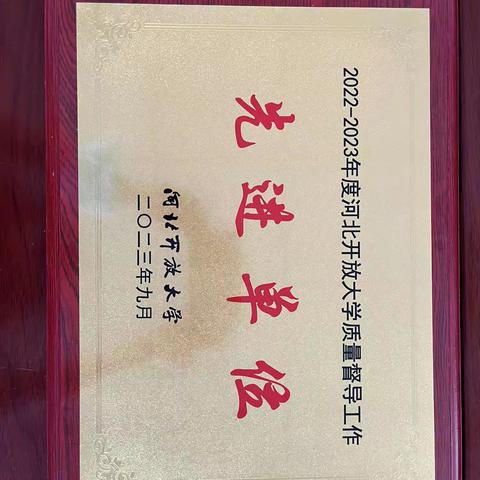 2022-2023年度河北开放大学质量督导工作
先进单位
河北开放大学
二〇二三年九月